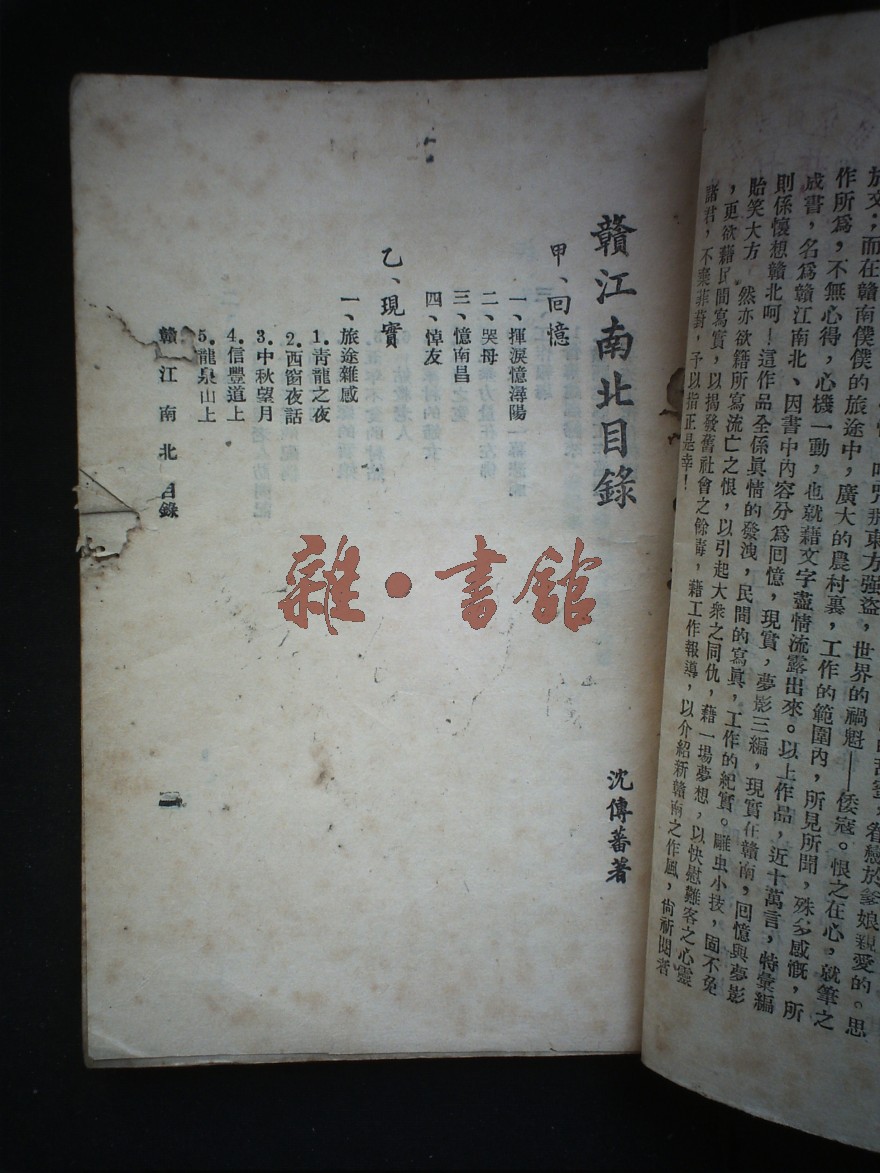 旅文；而在贛南僕僕的旅途中，廣大的農村裏，工作的範圍內，所見所聞，殊多感慨，所
作所爲，不無心得，心機一動，也就藉文字盡情流露出來。以上作品，近十萬言，特彙編
成書，名爲贛江南北、因書中內容分爲回憶，現實，夢影三編，現實在贛南，回憶與夢影
則係懷想贛北呵！這作品全係眞情的發洩，民間的寫眞，工作的紀實。雕虫小技，固不免
貽笑大方　然亦欲籍所寫流亡之恨，以引起大衆之同仇，藉一場夢想，以快慰難客之心靈
，更欲藉民間寫實，以揭發舊社會之餘毒，藉工作報導，以介紹新贛南之作風，尙祈閱者
諸君，不棄菲葑，予以指正是幸！
贛江南北目錄
沈傳蕃著
甲、回憶
一、揮淚憶潯陽
二、哭母
三、憶南昌
四、悼友
乙、現實
一、旅途雜感
1.青龍之夜
2.西窗夜話
3.中秋望月
4.信豐道上
5.龍泉山上
贛江南北目錄
一
雜·書館